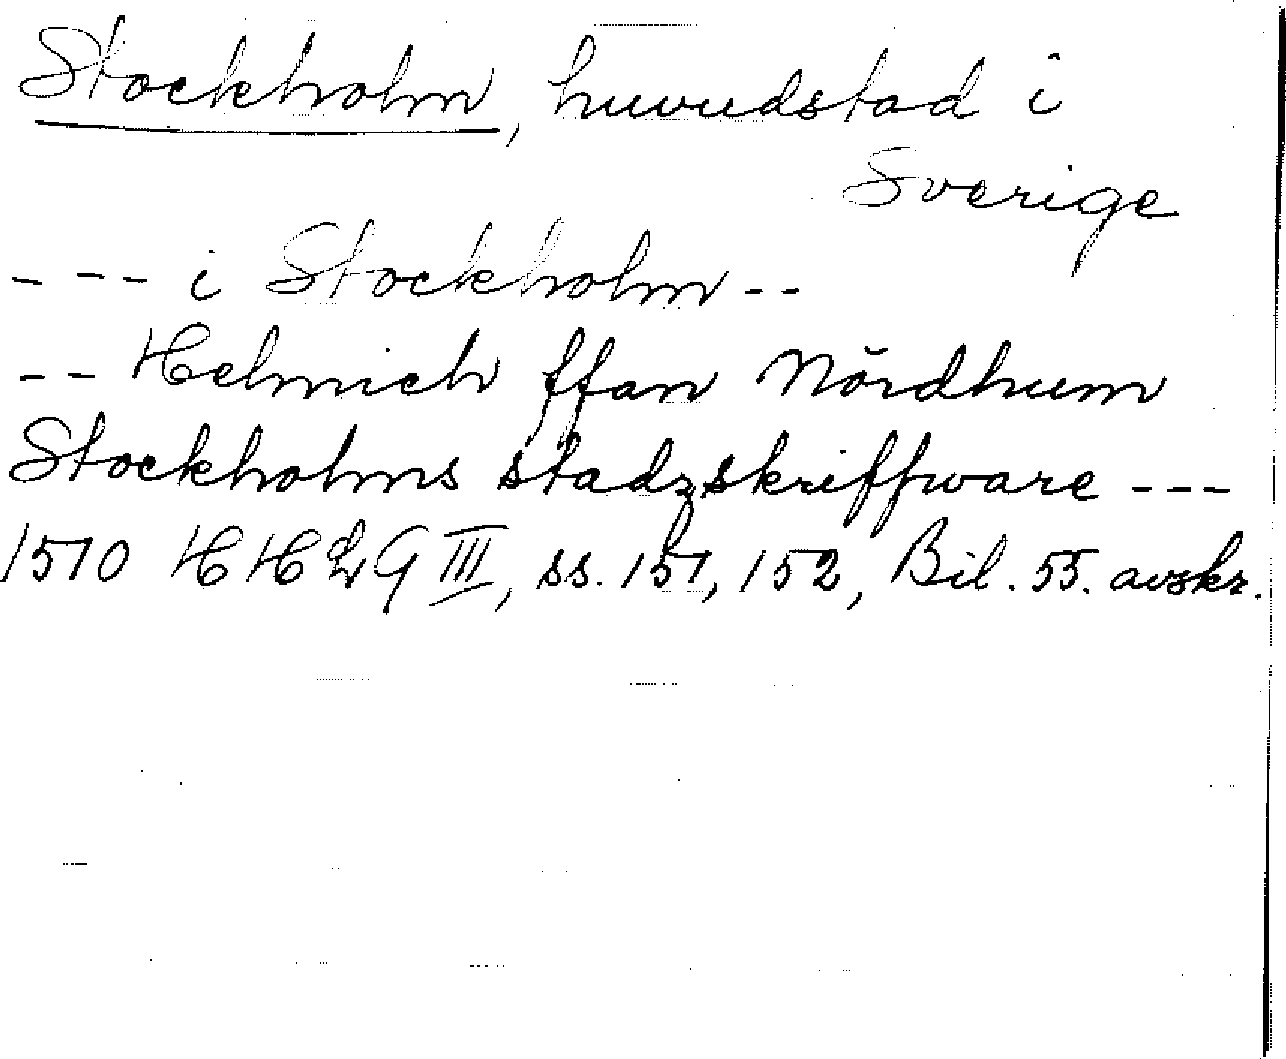 Stockholm, huvudstad i
Sverige
--- i Stockholm --
-- Helmich ffan Nördhum
Stockholms stadzskriffware ---
1510 HH LG III, ss. 151, 152, Bil. 55. avskr.